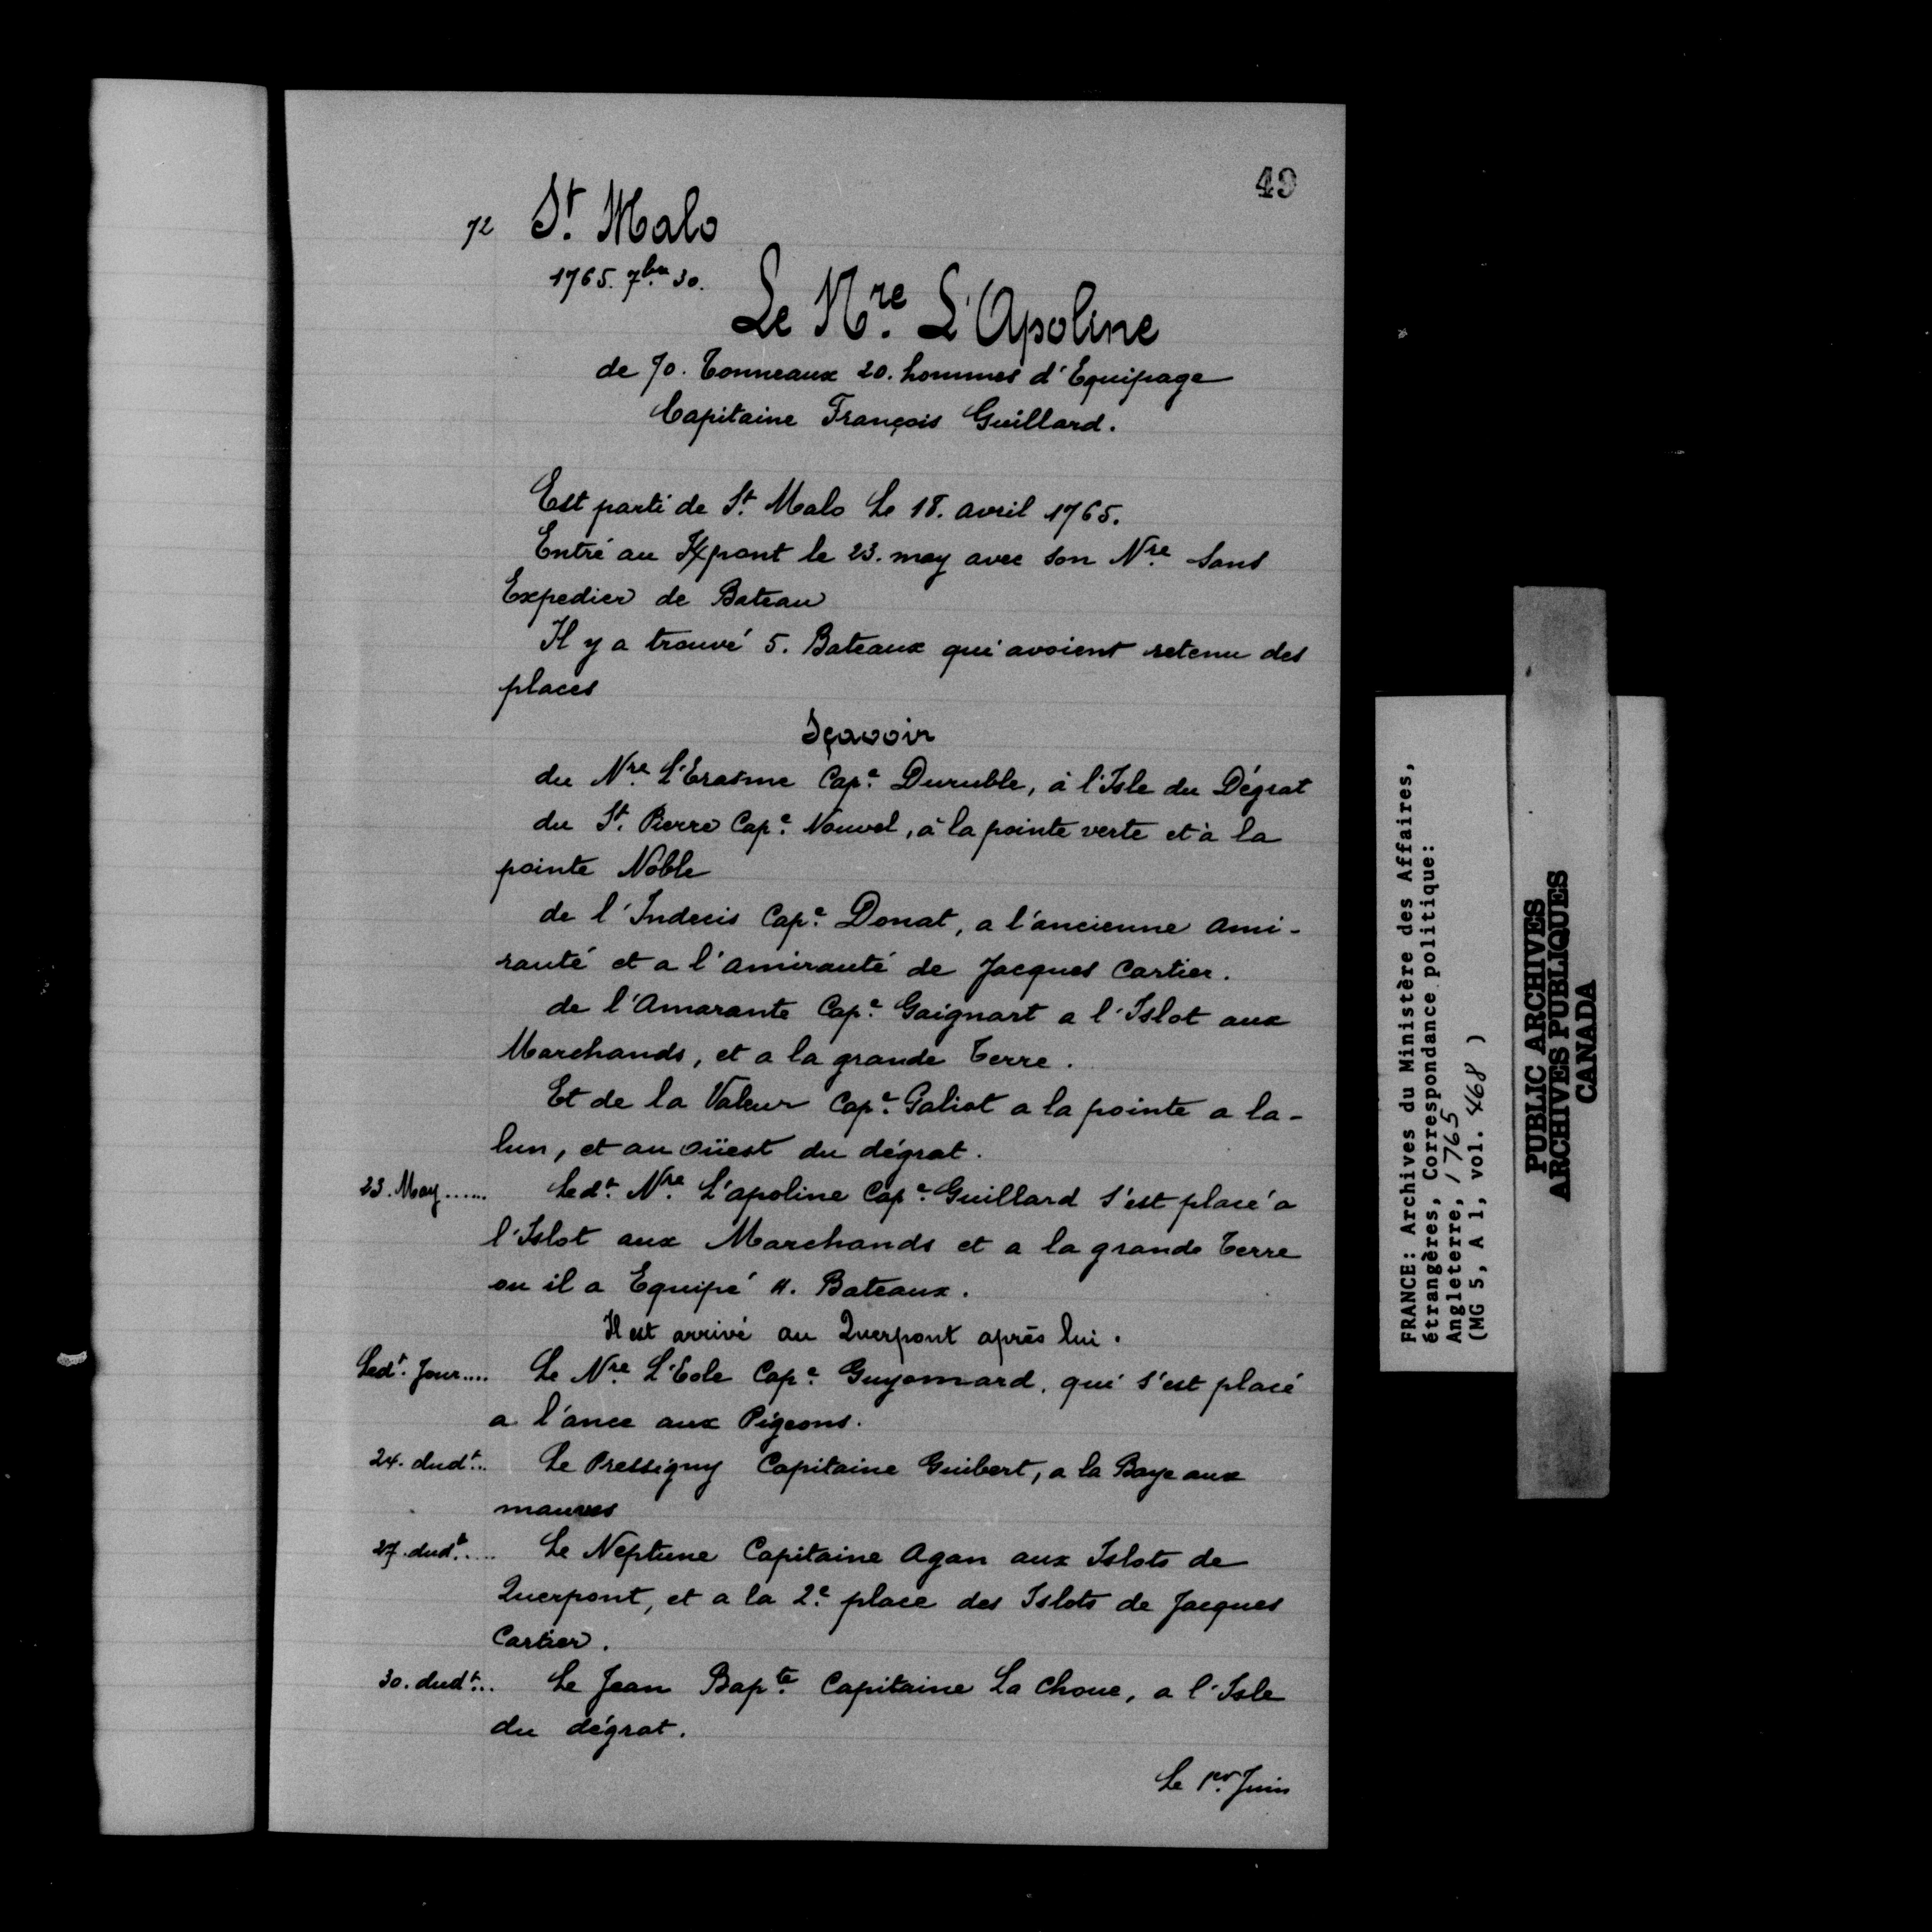 49
72 St. Malo
1765. 7bre 30.
Le Nre. L'Apoline
de 70. Tonneaux 20. hommes d'Equipage
Capitaine François Guillard.
Est parti de St. Malo Le 18. avril 1765.
Entré au pont le 23. may avec son Nre. sans
Expedier de Bateau
Il y a trouvé 5. Bateaux qui avoient retenu des
places
Sçavoir
du Nre. L'Erasme Cape. Duruble, à l'Isle du Dégrat
du St. Pierre Cape. Nouvel, à la pointe verte et à la
pointe Noble
de l'Indecis Cape. Donat, a l'ancienne ami-
rauté et a l'amirauté de Jacques Cartier.
de l'Amarante Cape. Gaignart a l'Islot aux
Marchands, et a la grande Terre.
Et de la Valeur Cape. Galiot a la pointe a la-
lun, et au oüest du dégrat.
23. May...... Ledt. Nre. L'apoline Cape. Guillard s'est placé a
l'Islot aux Marchands et a la grande Terre
ou il a Equipé Bateaux.
Il est arrivé au Querpont après lui.
Ledt. Jour.... Le Nre. L'Eole Cape. Guyomard, qui s'est placé
a l'ance aux Pigeons.
24. dudt... Le Pressigny Capitaine Guibert, a la Baye aux
mauves
27. dudt..... Le Neptune Capitaine Agan aux Islots de
Querpont, et a la 2e. place des Islots de Jacques
Cartier.
30. dudt... Le Jean Bapte. Capitaine La Choue, a l'Isle
du dégrat.
Le 1er. Juin
FRANCE: Archives du Ministère des Affaires,
étrangères, Correspondance politique:
Angleterre, 1765
(MG 5, A 1, vol. 468 )
PUBLIC ARCHIVES
ARCHIVES PUBLIQUES
CANADA